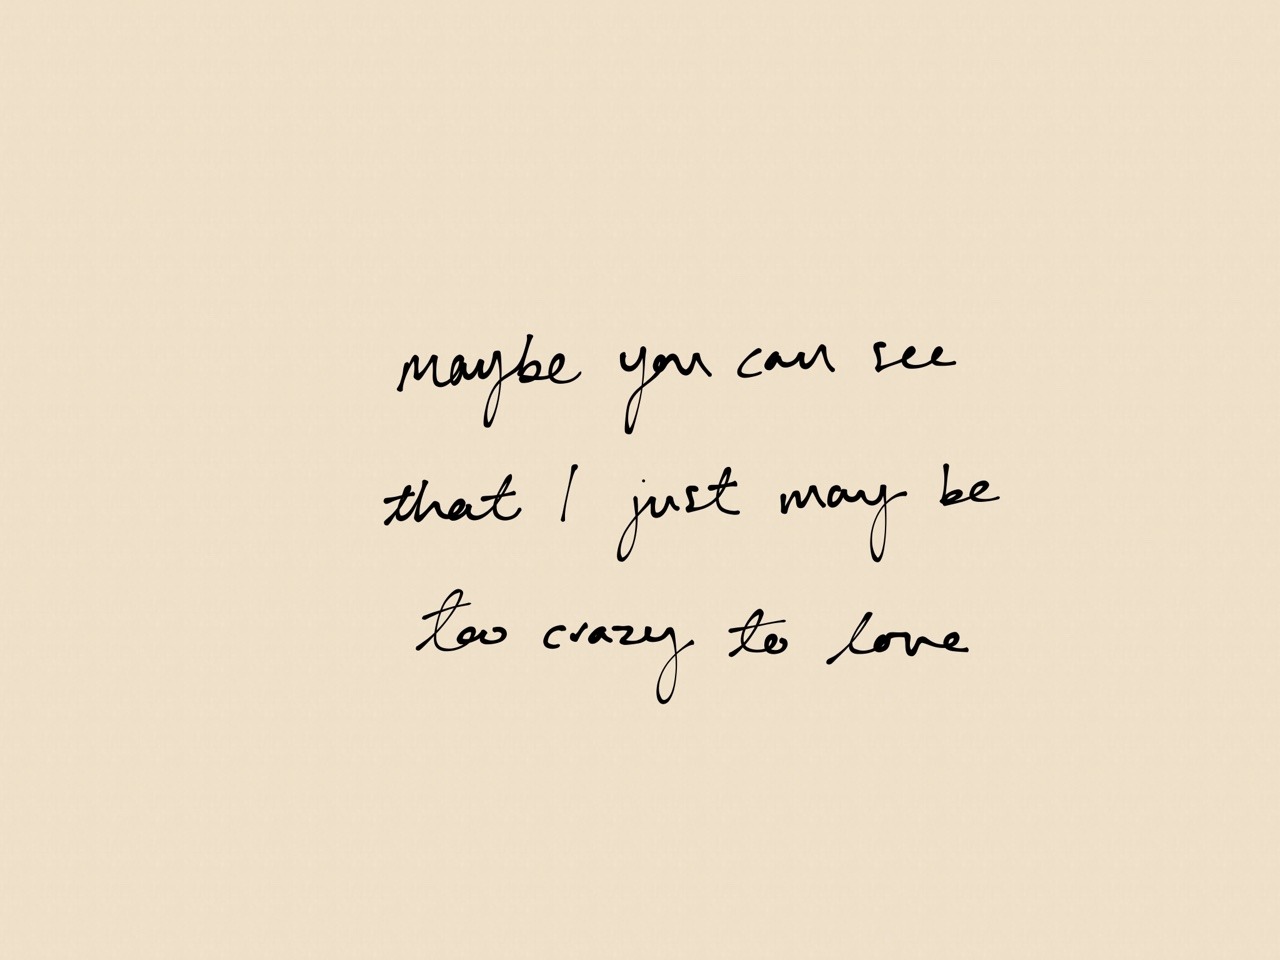 maybe you can see
that I just may be
too crazy to love